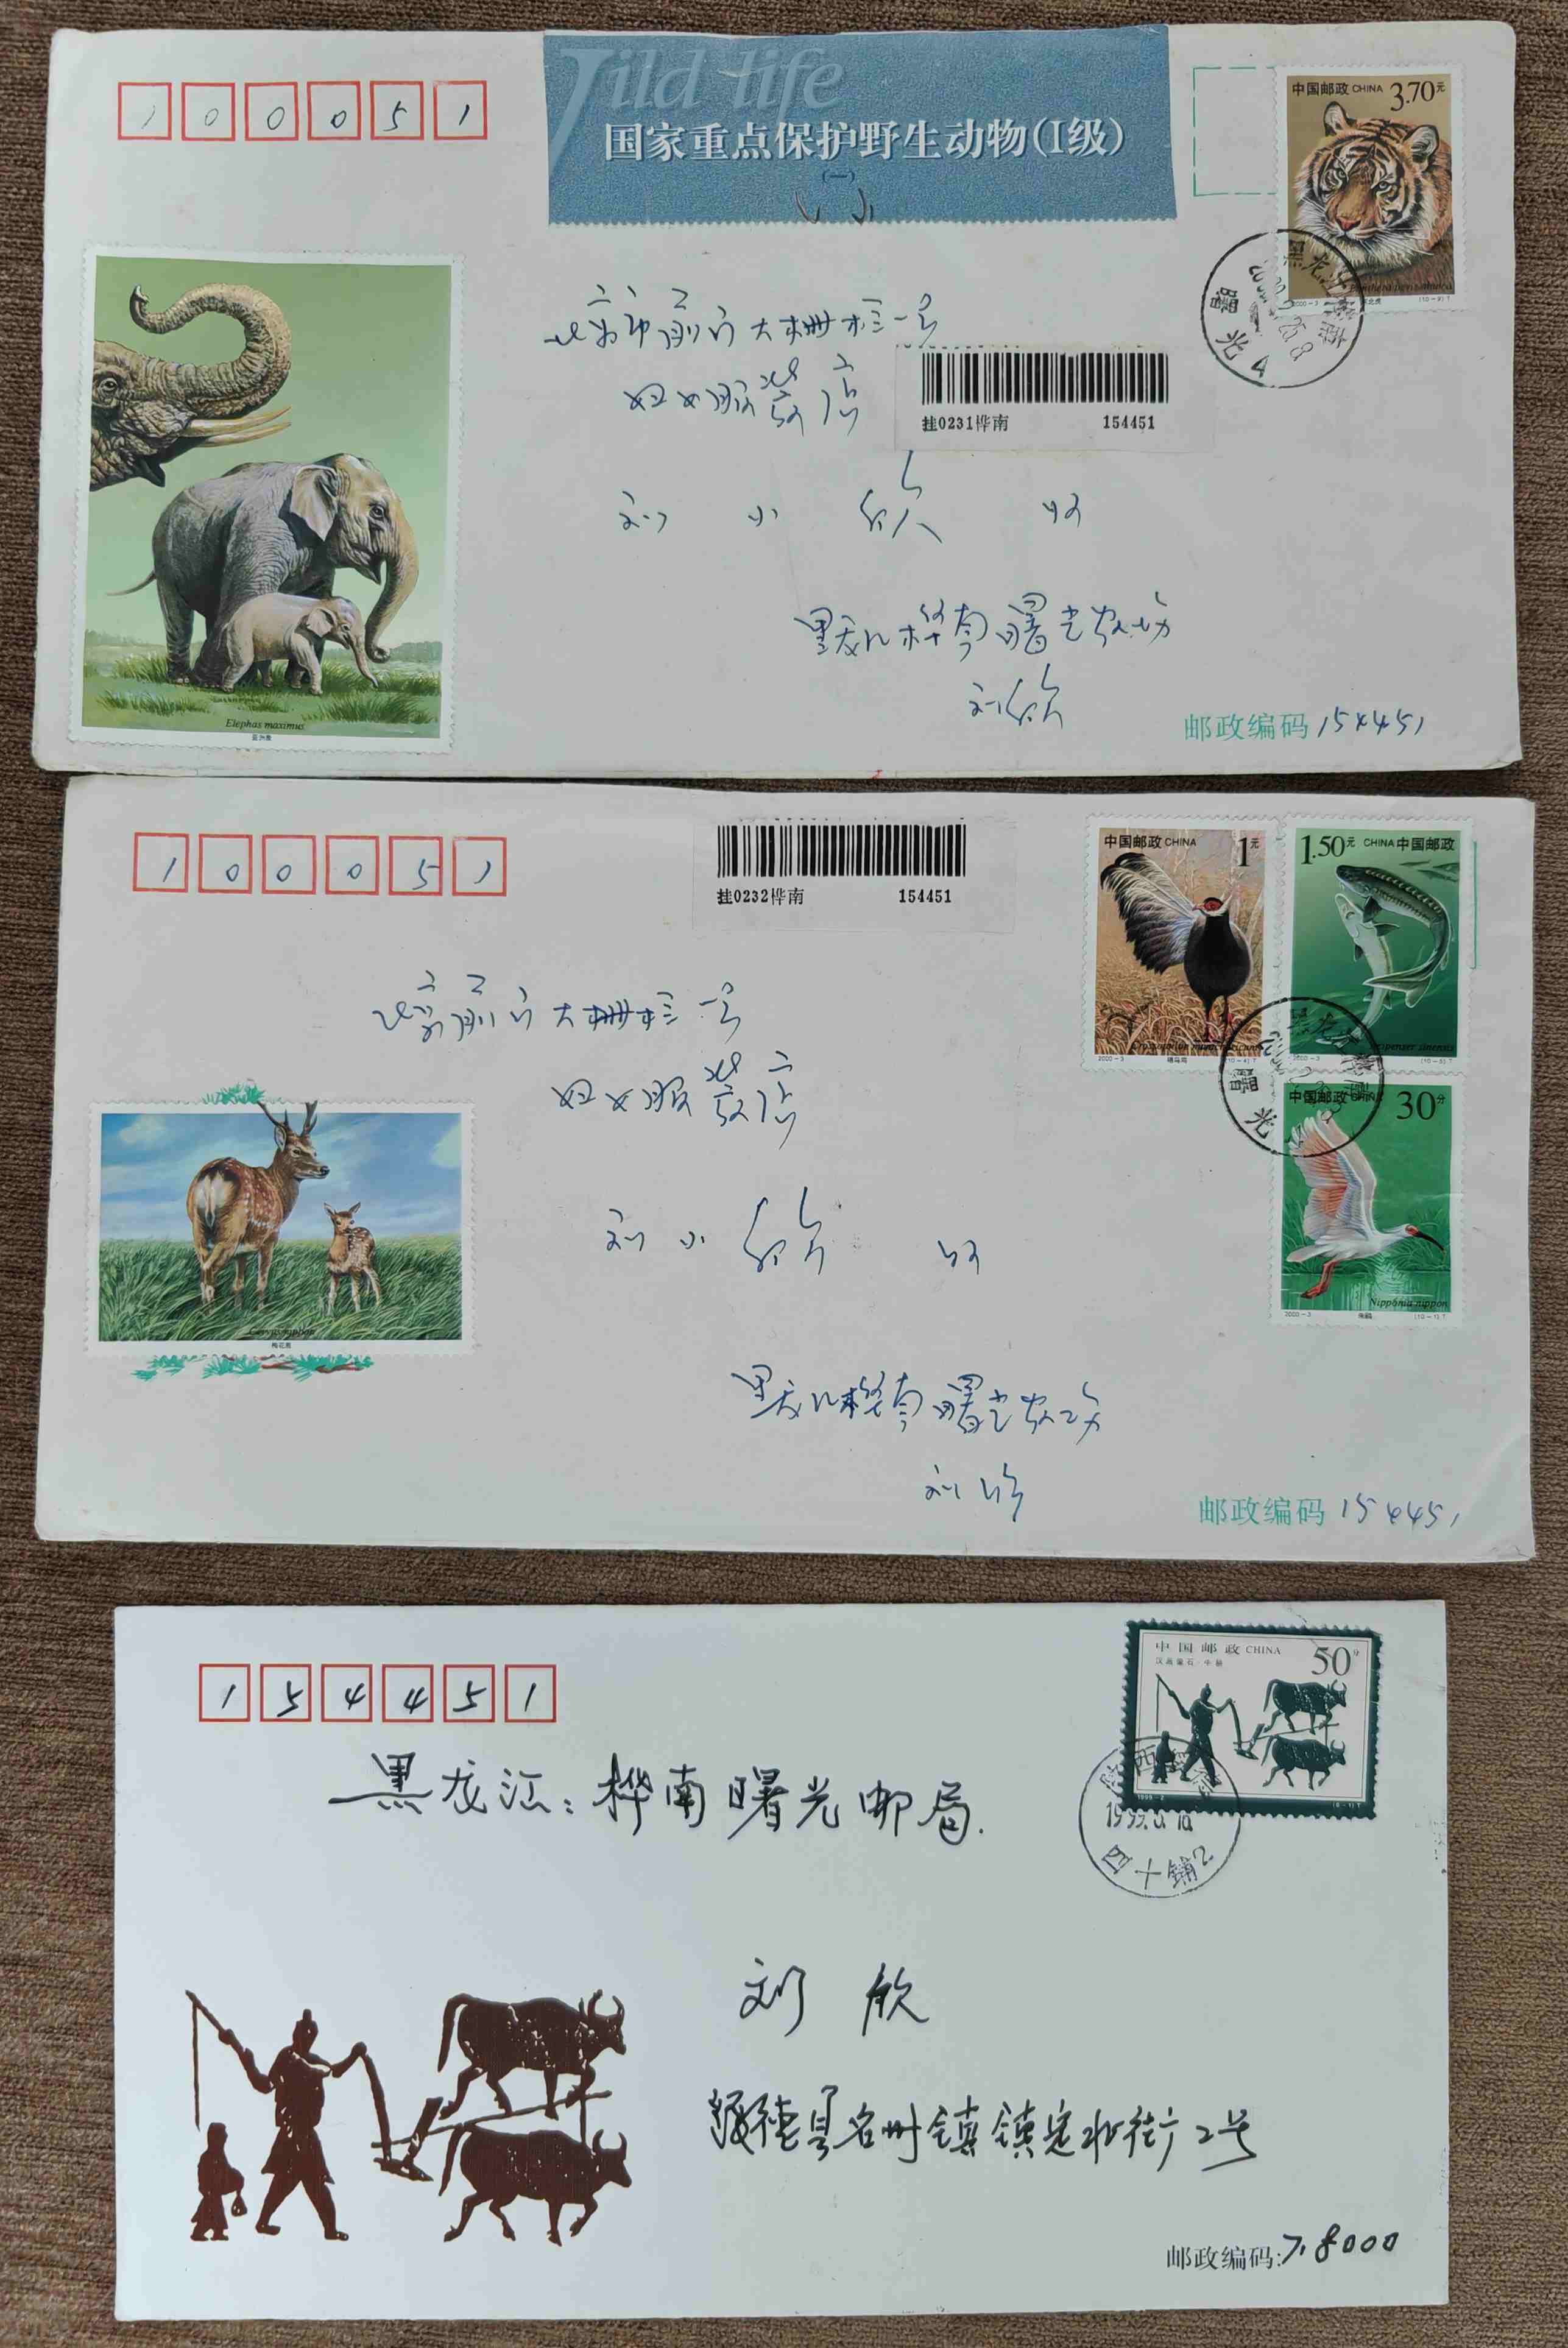 100051
Wild life
国家重点保护野生动物(I级)
(一)
中国邮政 CHINA 3.70元
2000-3 东北虎 (10-9)T
黑龙江桦南
曙光4
北京市前门大栅栏一号
妇女服装店
挂0231桦南 154451
刘小欣 收
黑龙江桦南曙光农场
刘欣
邮政编码 154451
Elephas maximus
亚洲象
100051
挂0232桦南 154451
中国邮政 CHINA 1元
2000-3 褐马鸡 (10-4)T
1.50元 CHINA 中国邮政
Acipenser sinensis
2000-3 (10-5)T
曙光
中国邮政 CHINA 30分
Nipponia nippon
2000-3 朱鹮 (10-1)T
北京前门大栅栏一号
妇女服装店
刘小欣 收
Cervus nippon
梅花鹿
黑龙江桦南曙光农场
刘欣
邮政编码 154451
154451
中国邮政 CHINA 50分
汉画像石·牛耕
1999-2 (6-1)T
四十铺2
黑龙江:桦南曙光邮局.
刘欣
绥德县名州镇镇定北街2号
邮政编码:718000